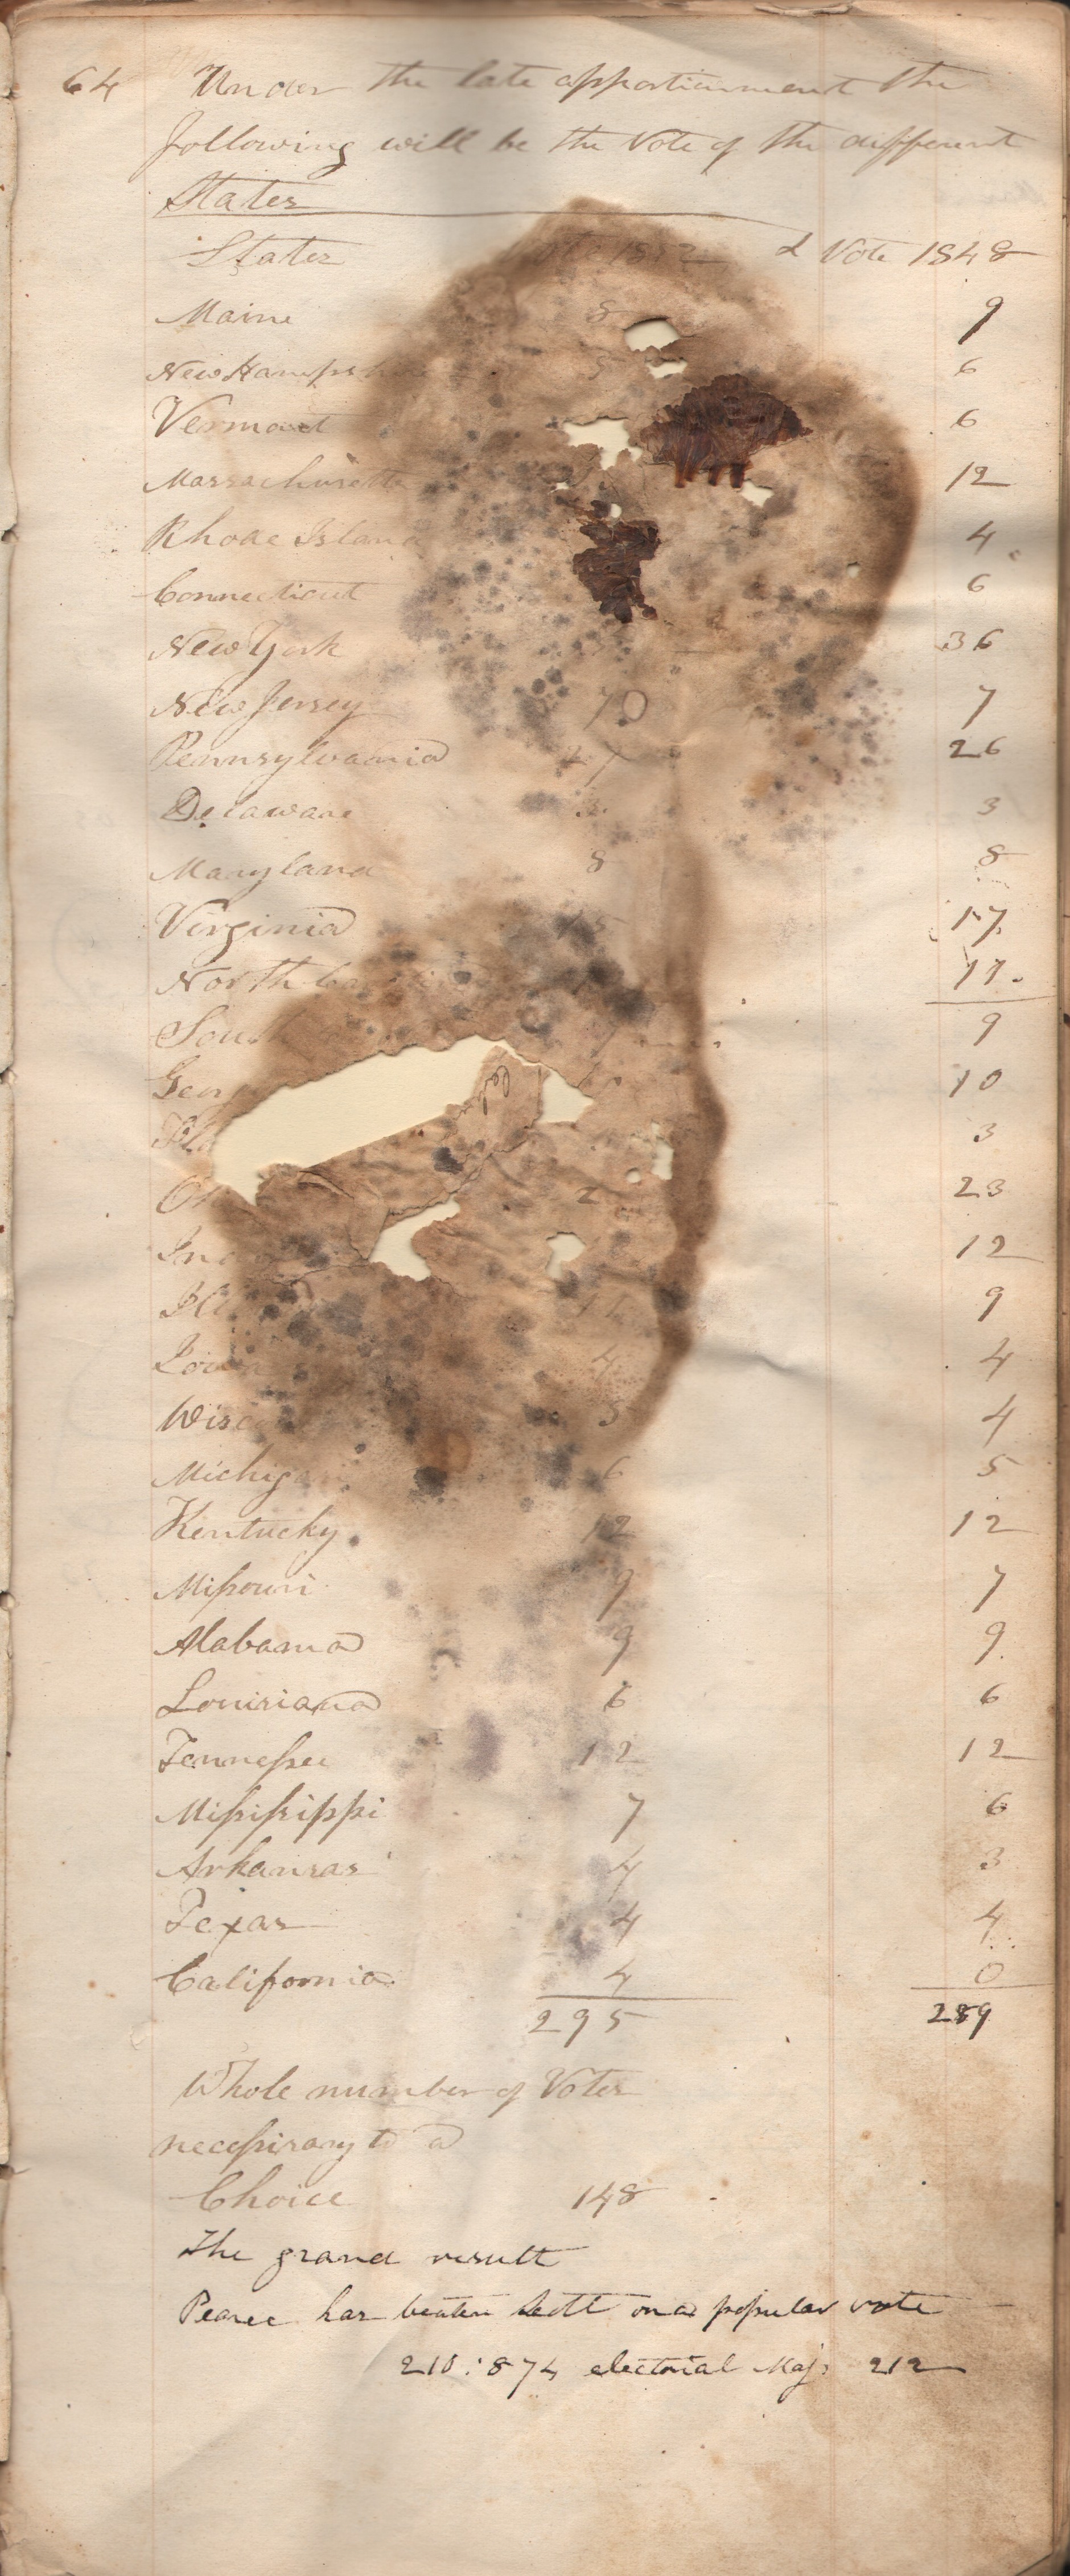 64 Under the late apportionment the
following will be the Vote of the different
States
States Vote 1852 d Vote 1848
Maine 8 9
New Hampsh 5 6
Vermont 6
Massachusetts 12
Rhode Island 4
Connecticut 6
New York 36
New Jersey 7
Pennsylvania 27 26
Delaware 3 3
Maryland 8 8
Virginia 15 17
North 11
Sou 9
Geor 10
Flo 3
Oh 2 23
Ind 12
Ill 11 9
Iowa 4 4
Wisco 5 4
Michigan 6 5
Kentucky 12 12
Missouri 9 7
Alabama 9 9
Louisiana 6 6
Tennessee 12 12
Mississippi 7 6
Arkansas 4 3
Texas 4 4
California 4 0
295 289
Whole number of Votes
necessary to a
Choice 148
The grand result
Pearce has beaten Scott on a popular vote
210:874 electorial Maj: 212